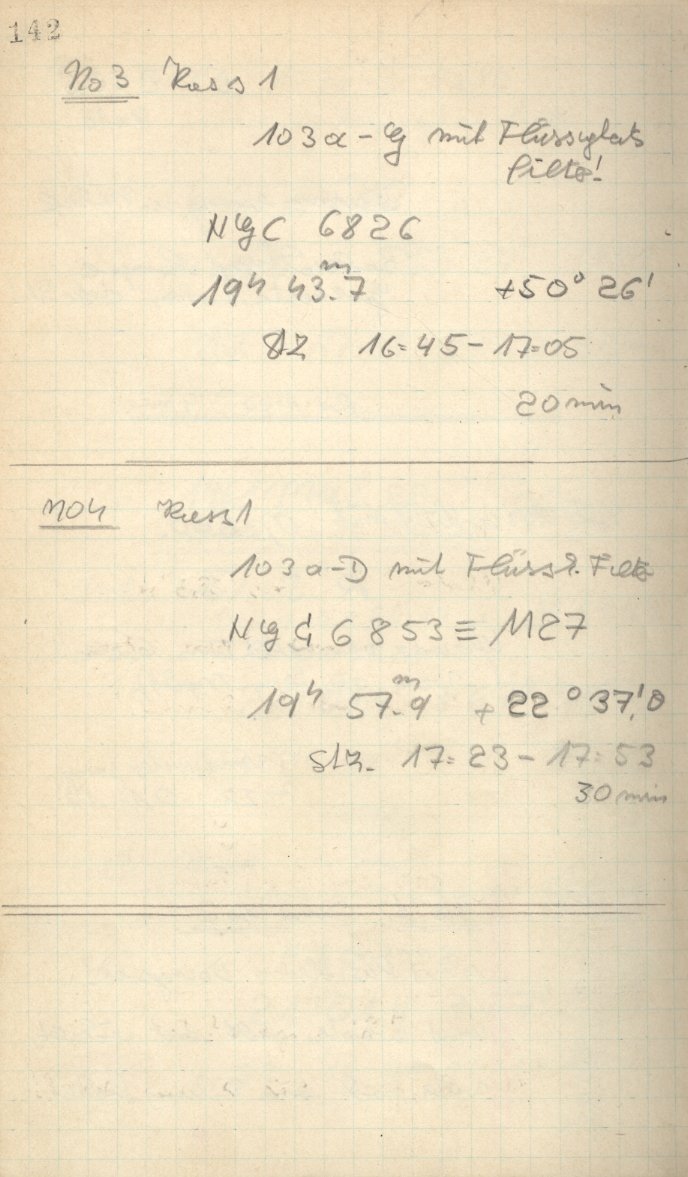 142
No 3 Kass 1
103a-G mit Flüssigkeits
filter!
NGC 6826
19h 43m.7 +50° 26'
StZ 16:45-17:05
20 min
No 4 Kass 1
103a-D mit Flüss. Filter
NGC 6853 ≡ M27
19h 57m.9 +22° 37'.0
StZ. 17:23-17:53
30 min